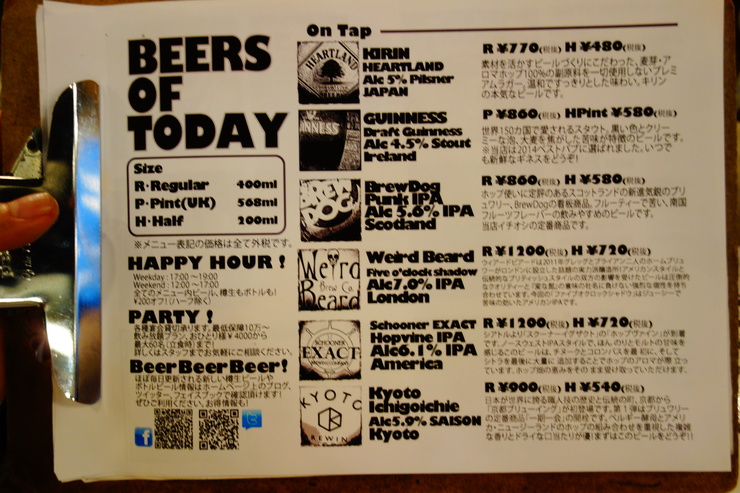 BEERS
OF
TODAY
Size
R・Regular 400ml
P・Pint(UK) 568ml
H・Half 200ml
※メニュー表記の価格は全て外税です。
HAPPY HOUR !
Weekday : 17:00 〜19:00
Weekend : 12:00 〜 17:00
全てのメニュー内ビール、樽生もボトルも!
¥200オフ!(ハーフ除く)
PARTY !
各種宴会貸切承ります。最低保障10万〜
飲み放題プラン、おひとり様¥4000から
最大60名(立食時)まで!
詳しくはスタッフまでお気軽にご相談ください。
BeerBeerBeer!
ほぼ毎日更新される新しい樽生ビールや
ボトルビール情報はホームページ上のブログ、
ツイッター、フェイスブックで確認頂けます!
ぜひご利用ください、お得情報も!
f
On Tap
HEARTLAND
KIRIN
HEARTLAND
Alc 5% Pilsner
JAPAN
R ¥770(税抜) H ¥480(税抜)
素材を活かすビールづくりにこだわった、麦芽・ア
ロマホップ100%の副原料を一切使用しないプレミ
アムラガー。温和ですっきりとした味わい。キリン
の本気なビールです。
GUINNESS
Draft Guinness
Alc 4.5% Stout
Ireland
P ¥860(税抜) HPint ¥580(税抜)
世界150カ国で愛されるスタウト。黒い色とクリー
ミーな泡、大麦を焦がした苦味が特徴のビールです。
※当店は2014ベストパブに選ばれました。いつで
も新鮮なギネスをどうぞ!
BREW
DOG
BrewDog
Punk IPA
Alc 5.6% IPA
Scotland
R ¥860(税抜) H ¥580(税抜)
ホップ使いに定評のあるスコットランドの新進気鋭のブリ
ュワリー、BrewDogの看板商品。フルーティーで苦い、南国
フルーツフレーバーの飲みやすめのビールです。
当店イチオシの定番商品です。
Weird
Brew Co.
Beard
Weird Beard
Five o'clock shadow
Alc7.0% IPA
London
R ¥1200(税抜) H ¥720(税抜)
ウィアードビアードは2011年グレッグとブライアン二人のホームブリュ
ワーがロンドンに設立した話題の実力派醸造所!アメリカンスタイルと
伝統的なブリティッシュスタイルの双方の影響を受けたビールは圧倒的
なクオリティーと「変な髭」の意味の社名に負けない強烈な個性を持ち
合わせています。今回の「ファイブオクロックシャドウ」はジューシーで
苦味の効いたアメリカンIPAです。
SCHOONER
EXACT
Schooner EXACT
Hopvine IPA
Alc6.1% IPA
America
R ¥1200(税抜) H ¥720(税抜)
シアトルより「スクーナーイグザクト」の「ホップヴァイン」が到着
です。ノースウェストIPAスタイルで、ほんのりとモルトの甘味を
感じるこのビールは、チヌークとコロンバスを最初に、そして
シトラを最後に大量に追加することでホップのアロマが際立っ
ています。ホップ畑の恵みをそのまま受け取っていただけます。
KYOTO
BREWING
Kyoto
Ichigoichie
Alc5.9% SAISON
Kyoto
R ¥900(税抜) H ¥540(税抜)
日本が世界に誇る職人技の歴史と伝統の町、京都から
「京都ブリューイング」が初登場です。第1弾はブリュワリー
の定番商品「一期一会」の樽です。ベルギー酵母とアメリ
カ・ニュージーランドのホップの組み合わせを重視した複雑
な香りとドライな口当たりが優!まずはこのビールをどうぞ!!